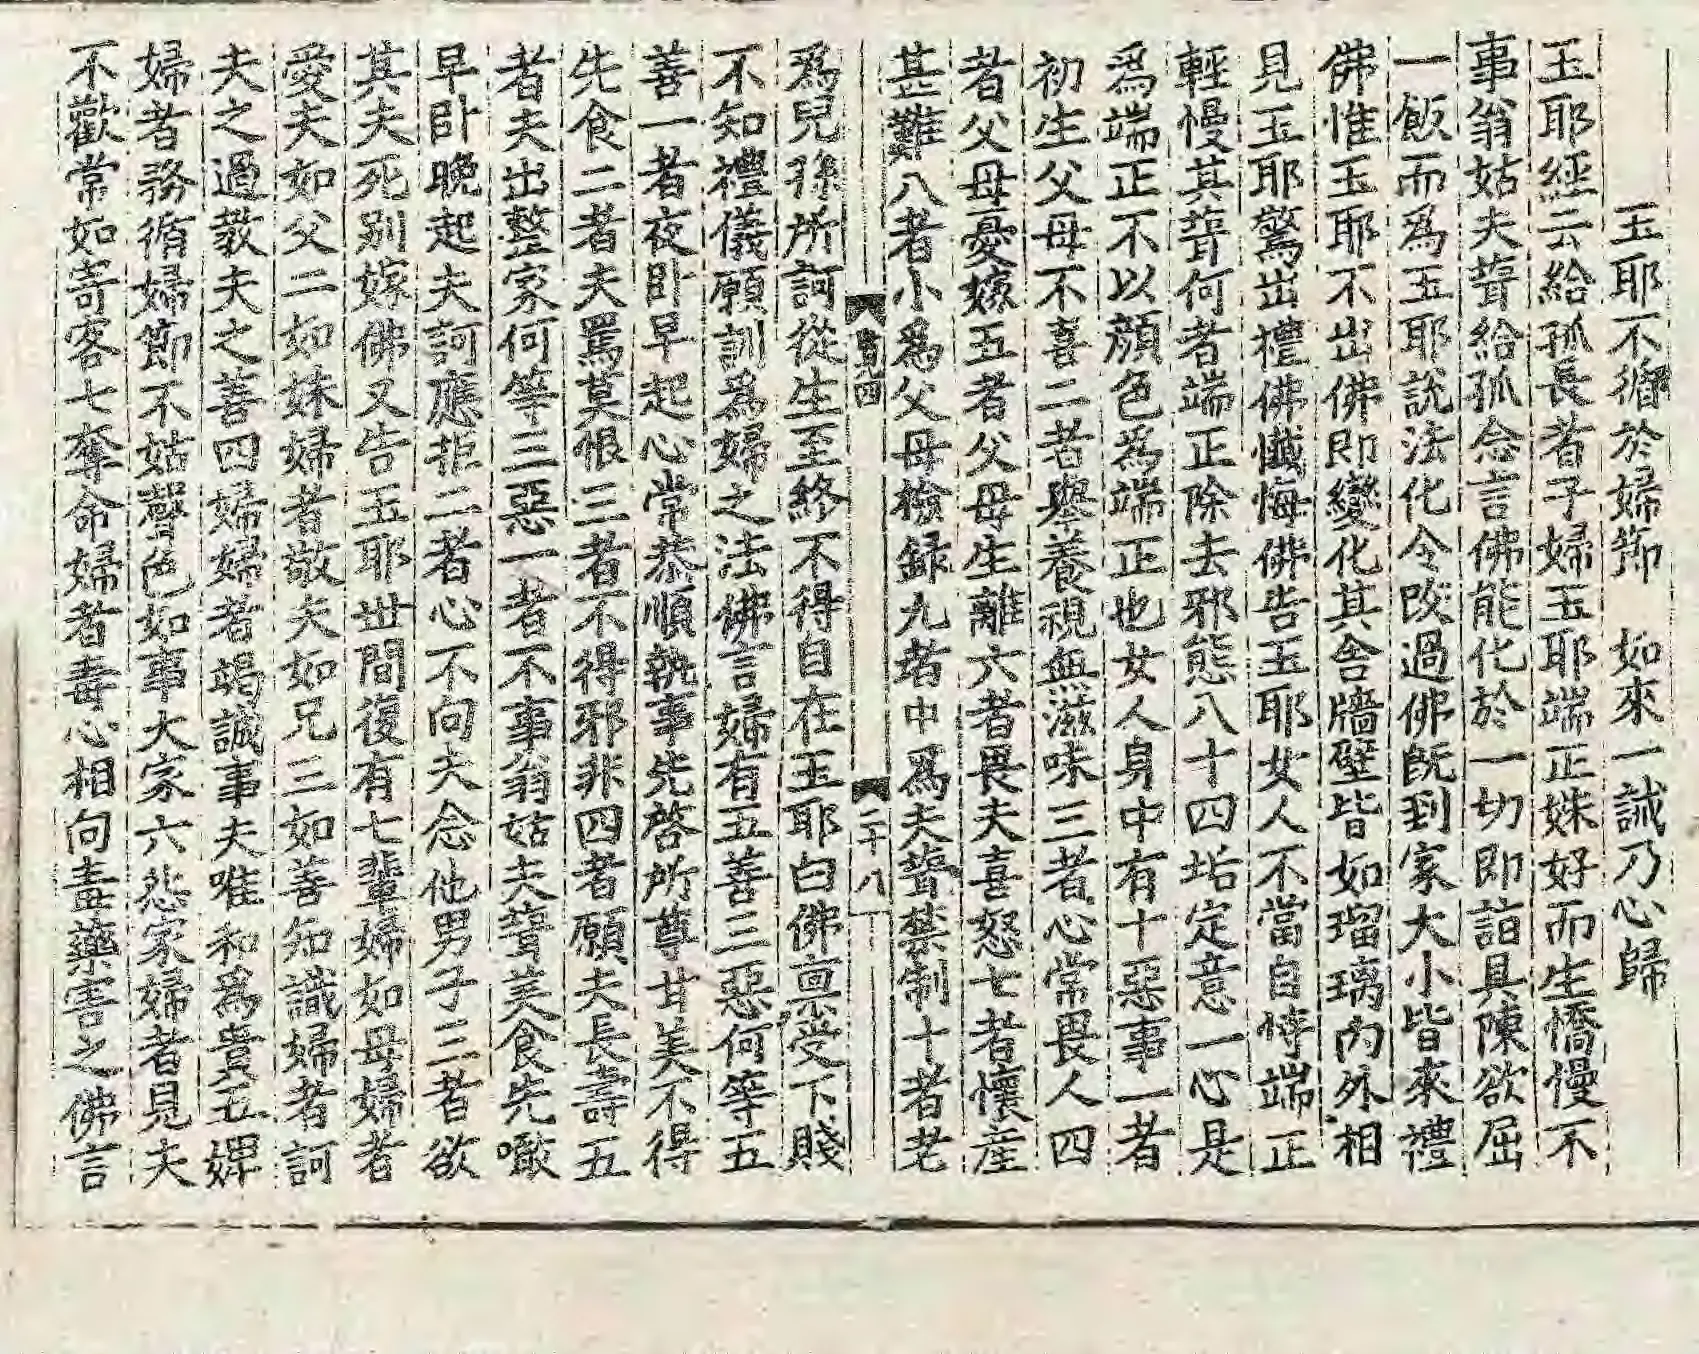 玉耶不循於婦節　如來一誡乃心歸
玉耶經云給孤長者子婦玉耶端正姝好而生憍慢不
事翁姑夫壻給孤念言佛能化於一切即詣具陳欲屈
一飯而爲玉耶說法化令改過佛旣到家大小皆來禮
佛惟玉耶不出佛即變化其舍牆壁皆如瑠璃內外相
見玉耶驚出禮佛懺悔佛告玉耶女人不當自恃端正
輕慢其壻何者端正除去邪態八十四垢定意一心是
爲端正不以顏色爲端正也女人身中有十惡事一者
初生父母不喜二者舉養視無滋味三者心常畏人四
者父母憂嫁五者父母生離六者畏夫喜怒七者懷產
甚難八者小爲父母撿録九者中爲夫壻禁制十者老
四
二十八
爲兒孫所訶從生至終不得自在玉耶白佛禀受下賤
不知禮儀願訓爲婦之法佛言婦有五善三惡何等五
善一者夜卧早起心常恭順執事先啓所尊甘美不得
先食二者夫罵莫恨三者不得邪非四者願夫長壽五
者夫出整家何等三惡一者不事翁姑夫壻美食先噉
早卧晚起夫訶應拒二者心不向夫念他男子三者欲
其夫死別嫁佛又告玉耶世間復有七輩婦如母婦者
愛夫如父二如妹婦者敬夫如兄三如善知識婦者訶
夫之過敎夫之善四婦婦者竭誠事夫唯和爲貴五婢
婦者務循婦節不姑聲色如事大家六怨家婦者見夫
不歡常如寄客七奪命婦者毒心相向盡藥害之佛言